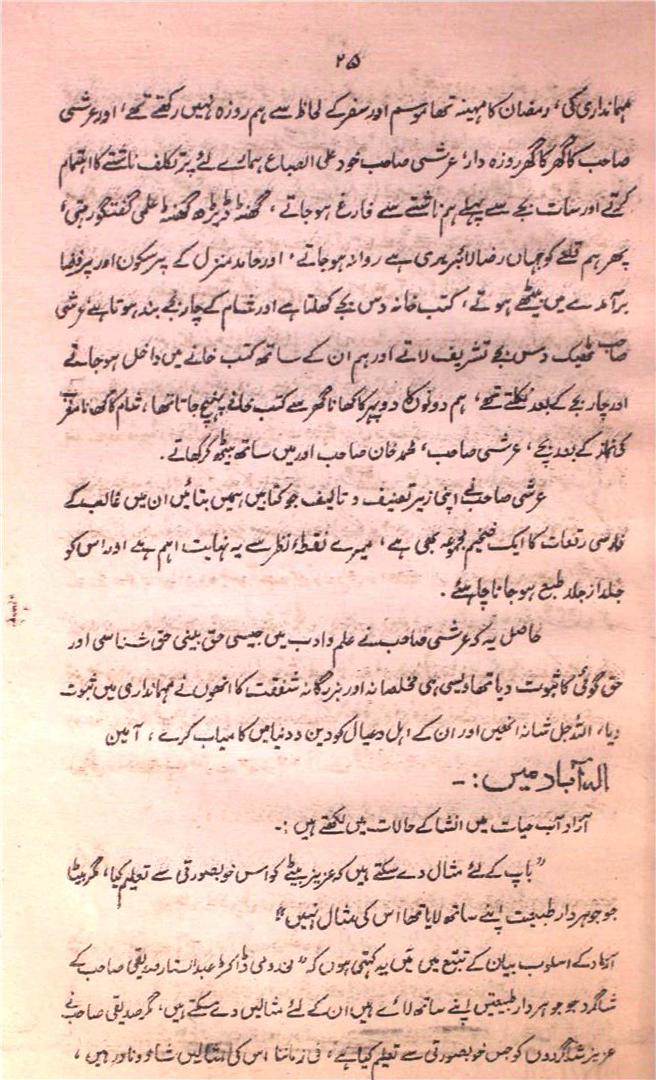 ۲۵
مہمانداری کی، رمضان کا مہینہ تھا موسم اور سفر کے لحاظ سے ہم روزہ نہیں رکھتے تھے، اور عرشی
صاحب کا گھر کا گھر روزہ دار، عرشی صاحب خود علی الصباح ہمارے لئے پرتکلف ناشتے کا اہتمام
کرتے اور سات بجے سے پہلے ہم ناشتے سے فارغ ہو جاتے، گھنٹہ ڈیڑھ گھنٹہ علمی گفتگو رہتی،
پھر ہم قلعے کو جہاں رضا لائبریری ہے روانہ ہو جاتے، اور حامد منزل کے پرسکون اور پرفضا
برآمدے میں بیٹھے ہوتے، کتب خانہ دس بجے کھلتا ہے اور شام کے چار بجے بند ہوتا ہے، عرشی
صاحب ٹھیک دس بجے تشریف لاتے اور ہم ان کے ساتھ کتب خانے میں داخل ہو جاتے
اور چار بجے کے بعد نکلتے تھے، ہم دونوں کا دوپہر کا کھانا گھر سے کتب خانے پہنچ جاتا تھا، شام کا کھانا مغرب
کی نماز کے بعد بچے، عرشی صاحب، محمد خان صاحب اور میں ساتھ بیٹھ کر کھاتے۔
عرشی صاحب نے اپنی زیر تصنیف و تالیف جو کتابیں ہمیں بتائیں ان میں غالب کے
فارسی رقعات کا ایک ضخیم مجموعہ بھی ہے، میرے نقطۂ نظر سے یہ نہایت اہم ہے اور اس کو
جلد از جلد طبع ہو جانا چاہئے۔
حاصل یہ کہ عرشی صاحب نے علم و ادب میں جیسی حق بینی حق شناسی اور
حق گوئی کا ثبوت دیا تھا ویسی ہی مخلصانہ اور بزرگانہ شفقت کا انھوں نے مہمانداری میں ثبوت
دیا، اللہ جل شانہ انھیں اور ان کے اہل و عیال کو دین و دنیا میں کامیاب کرے، آمین
الہ آباد میں:-
آزاد آب حیات میں انشا کے حالات میں لکھتے ہیں:-
"باپ کے لئے مثال دے سکتے ہیں کہ عزیز بیٹے کو اس خوبصورتی سے تعلیم کیا، مگر بیٹا
جو جوہردار طبیعت اپنے ساتھ لایا تھا اس کی مثال نہیں"
آزاد کے اسلوب بیان کے تتبع میں میں یہ کہتی ہوں کہ "مخدومی ڈاکٹر عبدالستار صدیقی صاحب کے
شاگرد جو جوہردار طبیعتیں اپنے ساتھ لائے ہیں ان کے لئے مثالیں دے سکتے ہیں، مگر صدیقی صاحب نے
عزیز شاگردوں کو جس خوبصورتی سے تعلیم کیا ہے، فی زماننا اس کی مثالیں شاذ و نادر ہیں،